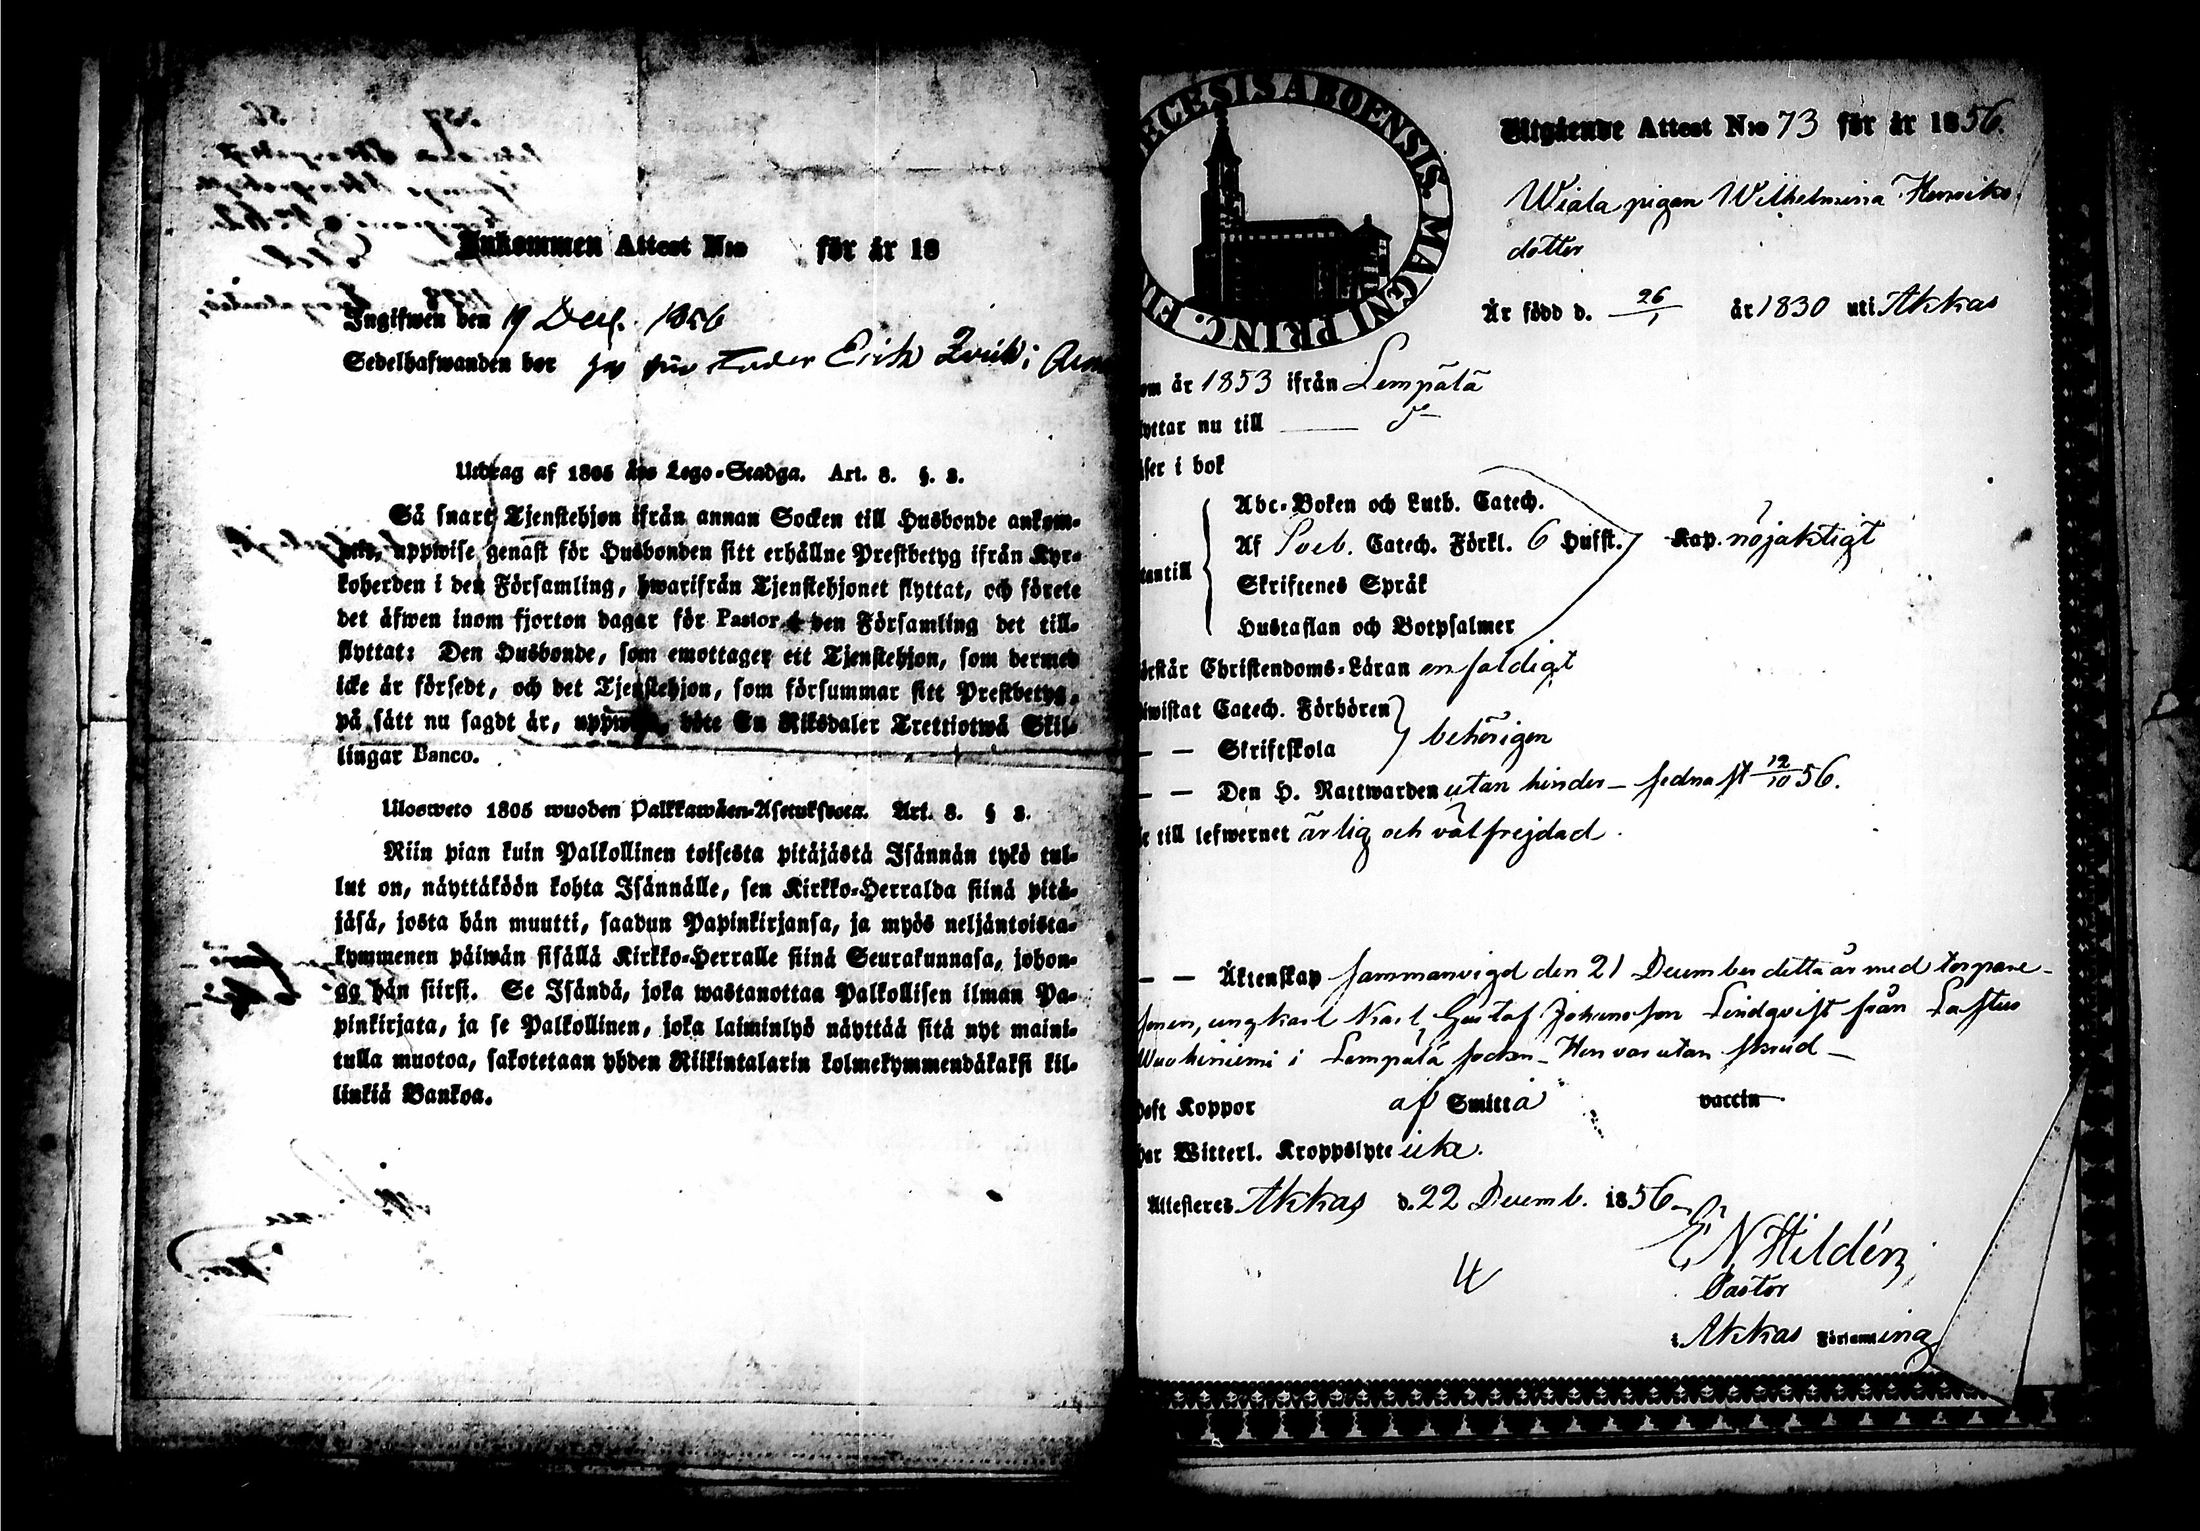 Inkommen Attest N:o för år 18
Ingifwen den 19 Dec. 1856
Sedelhafwanden bor Erik
Utdrag af 1805 års Lego-Stadga. Art. 8. §. 3.
Så snart Tjenstehjon ifrån annan Socken till Husbonde ankom-
mit, uppwise genast för Husbonden sitt erhållne Prestbetyg ifrån Kyr-
koherden i den Församling, hwarifrån Tjenstehjonet flyttat, och förete
det äfwen inom fjorton dagar för Pastor i den Församling det till-
flyttat: Den Husbonde, som emottager ett Tjenstehjon, som dermed
icke är försedt, och det Tjenstehjon, som försummar sitt Prestbetyg,
på sätt nu sagdt är, uppwisa, böte En Riksdaler Trettiotwå Skil-
lingar Banco.
Ulosweto 1805 wuoden Palkkawäen-Asetuksesta. Art. 8. § 3.
Niin pian kuin Palkollinen toisesta pitäjästä Isännän tykö tul-
lut on, näyttäköön kohta Isännälle, sen Kirkko-Herralda siinä pitä-
jäsä, josta hän muutti, saadun Papinkirjansa, ja myös neljäntoista-
kymmenen päiwän sisällä Kirkko-Herralle siinä Seurakunnasa, johon-
ga hän siirsi. Se Isändä, joka wastanottaa Palkollisen ilman Pa-
pinkirjata, ja se Palkollinen, joka laiminlyö näyttää sitä nyt maini-
tulla muotoa, sakotetaan yhden Riikintalarin kolmekymmendäkaksi kil-
linkiä Bankoa.
ECESIS ABOENSIS. MAGNI PRINC. FIN
Utgående Attest N:o 73 för år 1856.
Wiala pigan Wilhelmina Henriks
dotter
Är född d. 26/1 år 1830 uti Akkas
om år 1853 ifrån Lempälä
yttar nu till
äser i bok
Abc-Boken och Luth. Catech.
Af Sveb. Catech. Förkl. 6 Hufst. Kap. nöjaktigt
tantill
Skriftenes Språk
Hustaflan och Botpsalmer
örstår Christendoms-Läran enfaldigt
iwistat Catech. Förhören
— — Skriftskola behörigen
— — Den H. Nattwarden utan hinder – sednast 12/10 56.
e till lefwernet ärlig och välfrejdad.
— — Äktenskap sammanvigd den 21 December detta år med torpare-
sonen, ungkarl Karl Gustaf Johansson Lindqvist från Lastus
Wuohiniemi i Lempälä socken – Hon var utan skrud –
haft Koppor af Smitta vaccin
har Witterl. Kroppslyte icke.
Attesteres Akkas d. 22 Decemb. 1856
E N Hildén
Pastor
i Akkas Församling